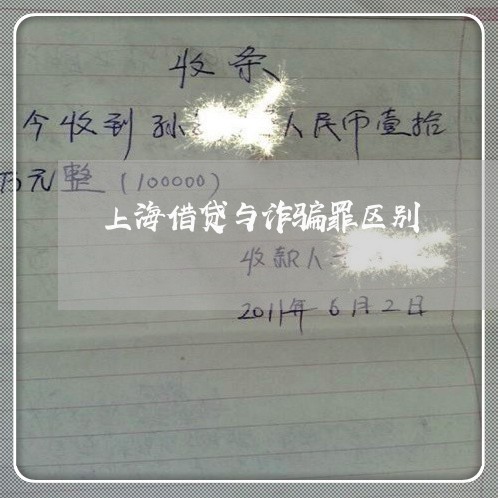 收条
今收到孙 人民币壹拾
万元整(100000)
上海借贷与诈骗罪区别
收款人
2011年6月2日